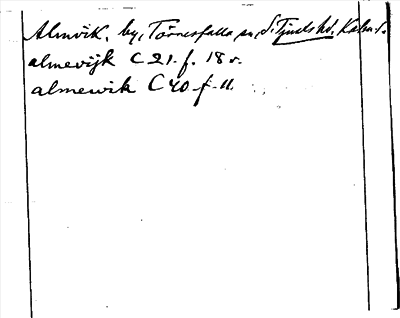 Almvik, by, Törnesfalla sn, S. Tjusts hd. Kalm. l.
almevijk C 21. f. 18 v.
almewik C 40 f. 11.